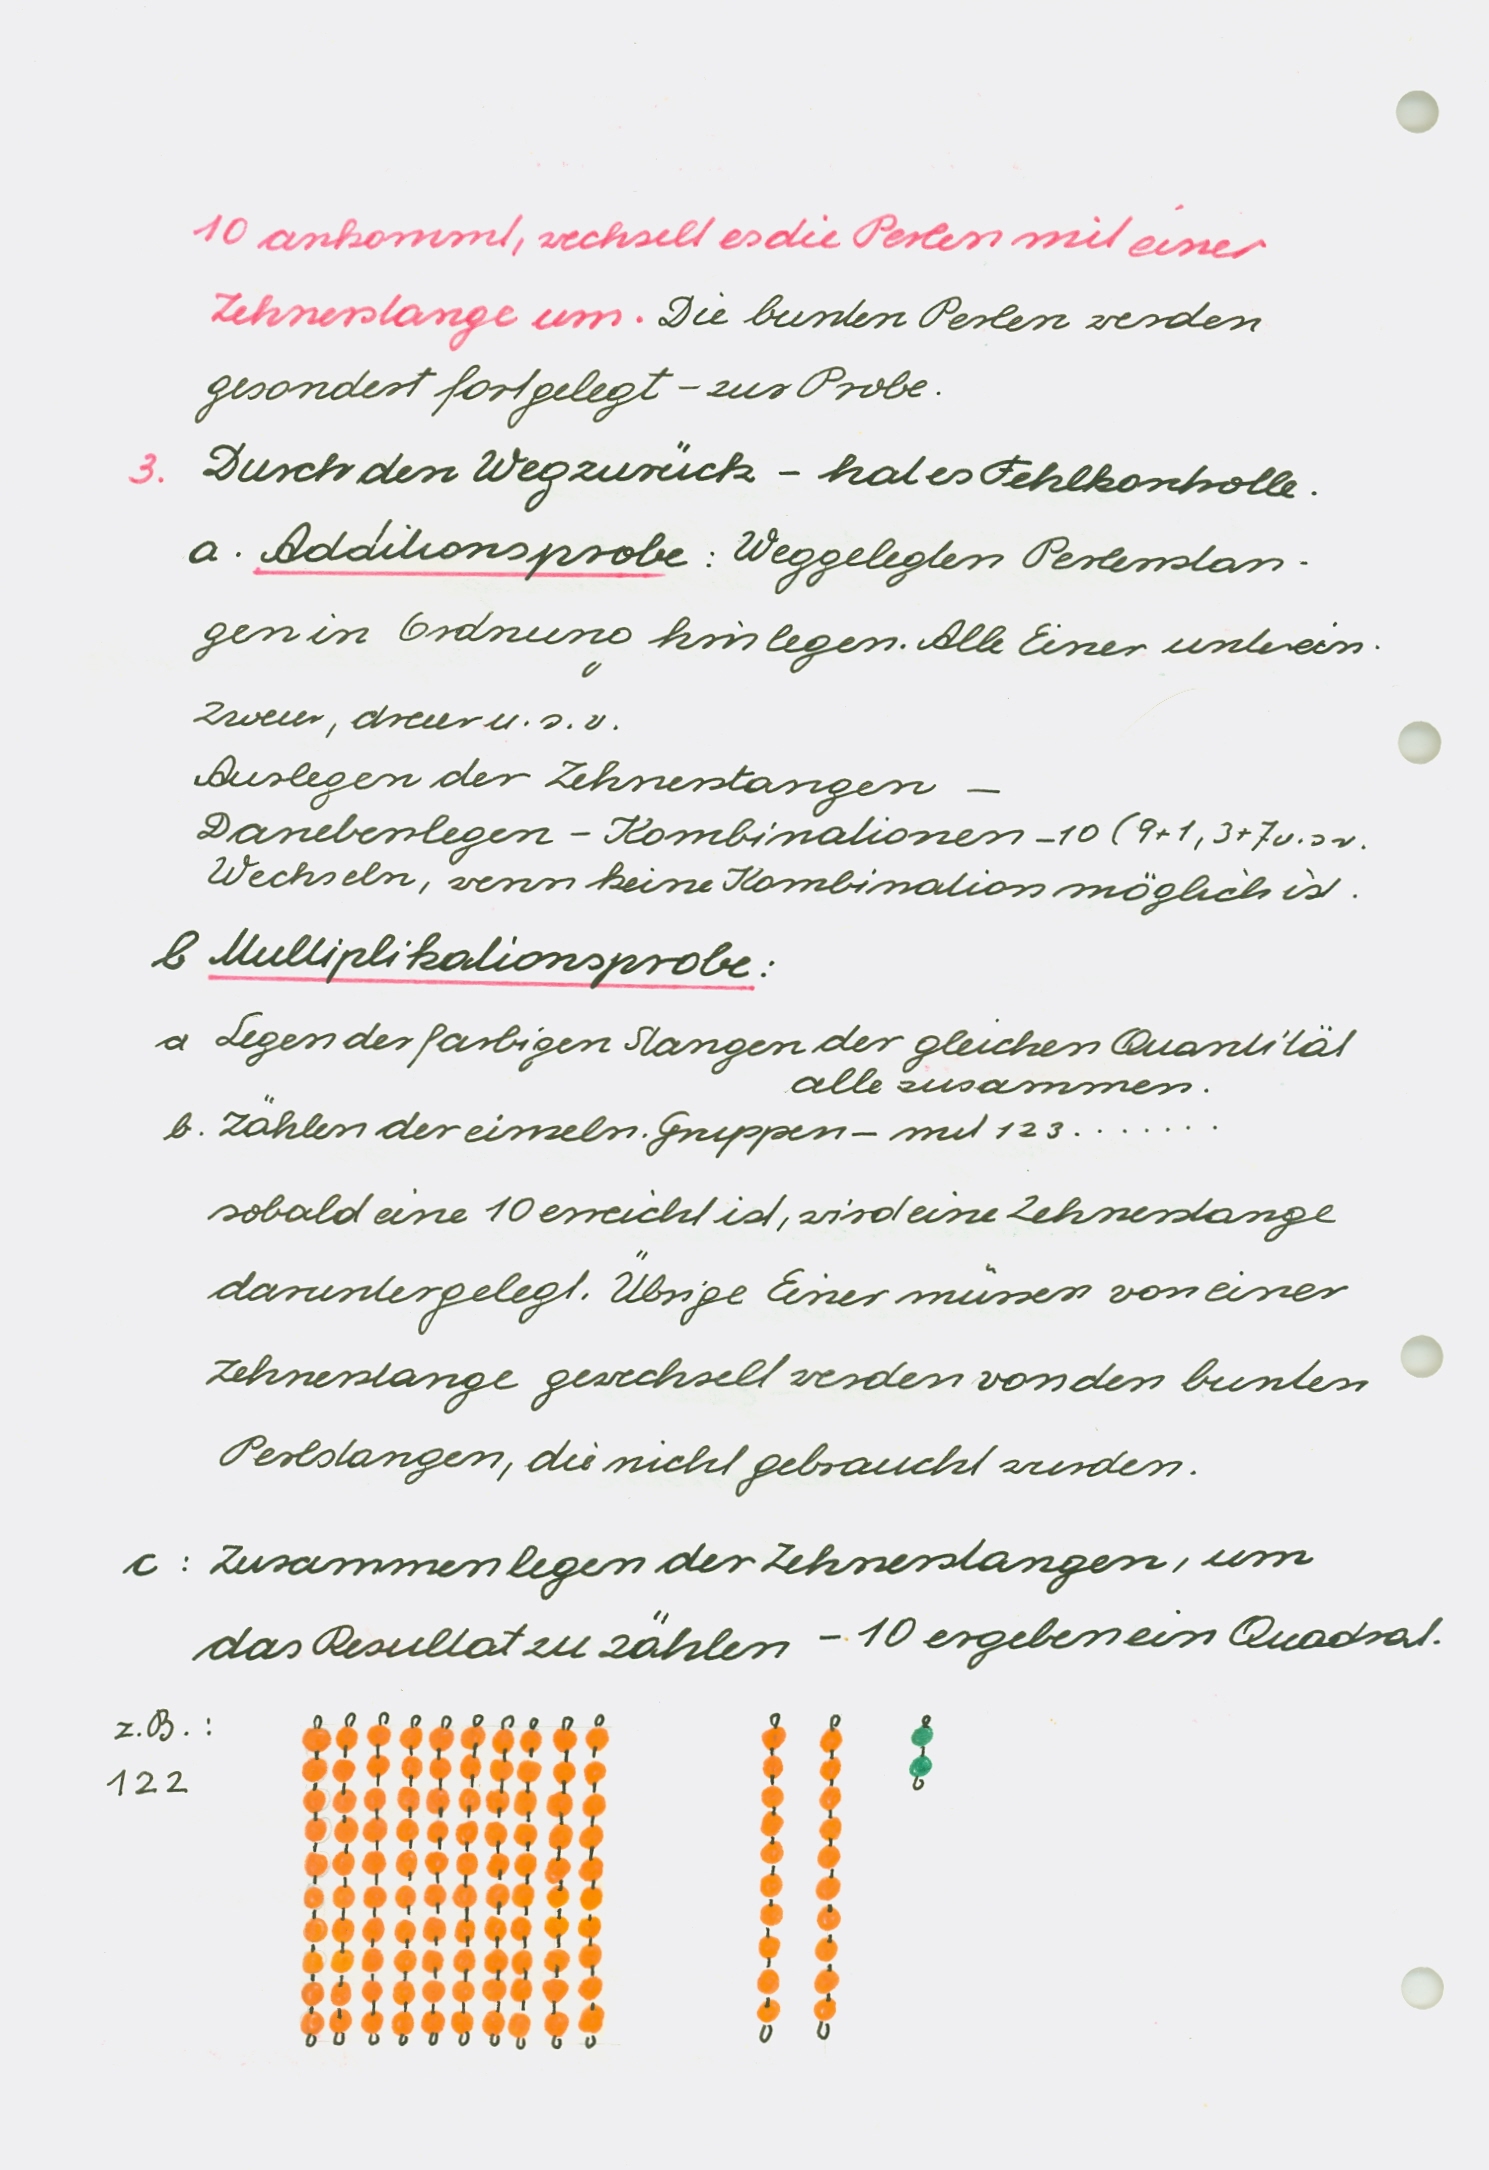 10 ankommt, wechselt es die Perlen mit einer
Zehnerstange um. Die bunten Perlen werden
gesondert fortgelegt – zur Probe.
3. Durch den Weg zurück – hat es Fehlkontrolle.
a. Additionsprobe: Weggelegten Perlenstan-
gen in Ordnung hinlegen. Alle Einer unterein.
Zweier, dreier u.s.v.
Auslegen der Zehnerstangen –
Danebenlegen – Kombinationen – 10 (9+1, 3+7 u.s.v.
Wechseln, wenn keine Kombination möglich ist.
b Multiplikationsprobe:
a Legen der farbigen Stangen der gleichen Quantität
alle zusammen.
b. Zählen der einzeln. Gruppen – mit 1 2 3 . . . . . . .
sobald eine 10 erreicht ist, wird eine Zehnerstange
daruntergelegt. Übrige Einer müssen von einer
Zehnerstange gewechselt werden von den bunten
Perlstangen, die nicht gebraucht wurden.
c: Zusammenlegen der Zehnerstangen, um
das Resultat zu zählen – 10 ergeben ein Quadrat.
z.B.:
122